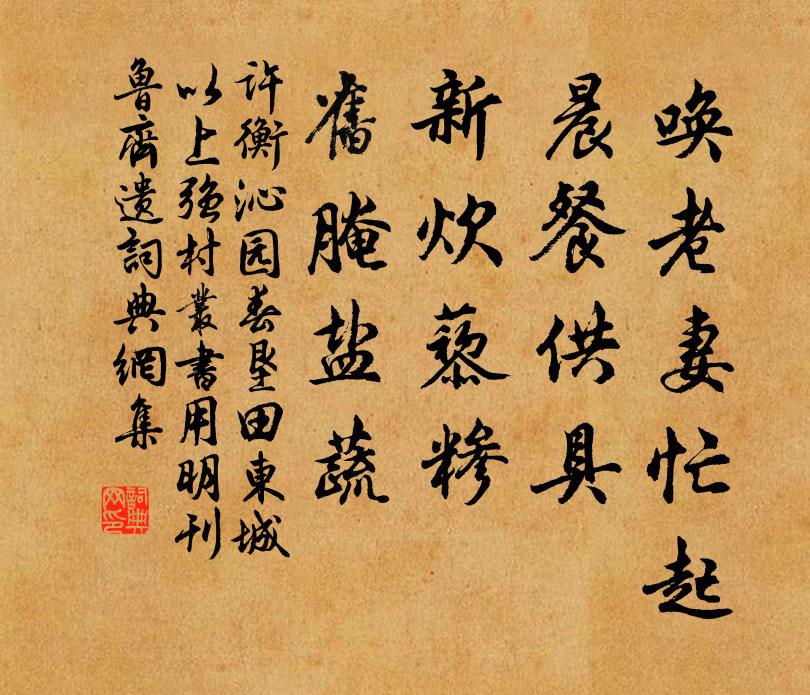 唤老妻忙起
晨餐供具
新炊藜糁
旧腌盐蔬
许衡沁园春垦田东城
以上强村丛书用明刊
鲁斋遗词典网集
词典网印